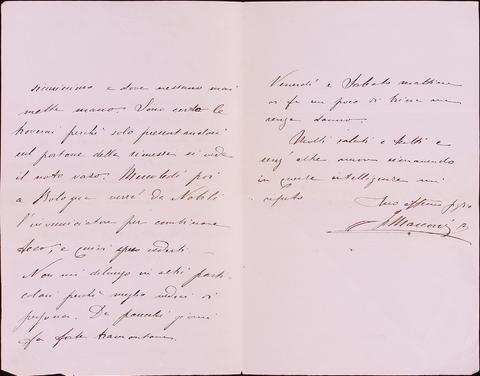 sicurissimo e dove nessuno mai
mette mano. Sono certo le
troverai perchè solo presentandosi
sul portone della rimessa si vede
il noto vaso. Mercoledì poi
a Bologna verrò da Nobili
l'
per combinare
teco, e quindi
Non mi dilungo in altri parti-
colari perchè meglio vederci di
persona. Da parecchi giorni
fa forte tramontana.
Venerdì e Sabato mattina
vi fu un poco di brina ma
senza danno.
Molti saluti a tutti e
senz'altro ancora rimanendo
in questa intelligenza mi
ripeto
Tuo affmo
G Marconi